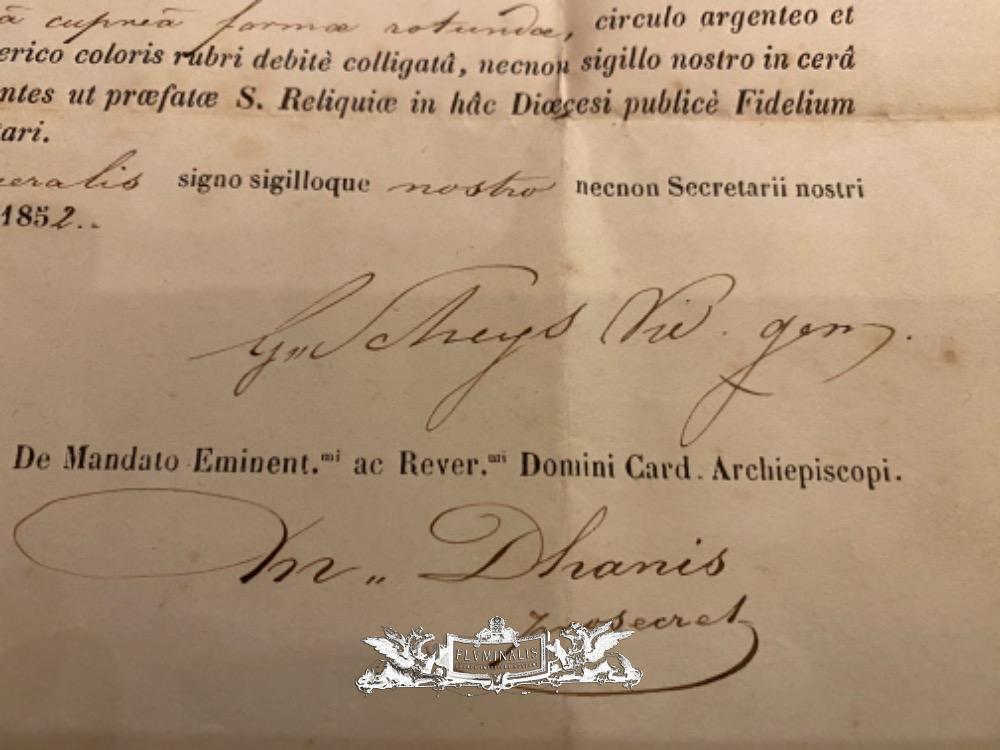 â cupreâ formæ rotundæ, circulo argenteo et
erico coloris rubri debitè colligatâ, necnon sigillo nostro in cerâ
ntes ut præfatæ S. Reliquiæ in hâc Diœcesi publicè Fidelium
tari.
eralis signo sigilloque nostro necnon Secretarii nostri
1852..
Scheys Vic. gen.
De Mandato Eminent.mi ac Rever.mi Domini Card. Archiepiscopi.
m,, Dhanis
prosecret
FLVMINALIS